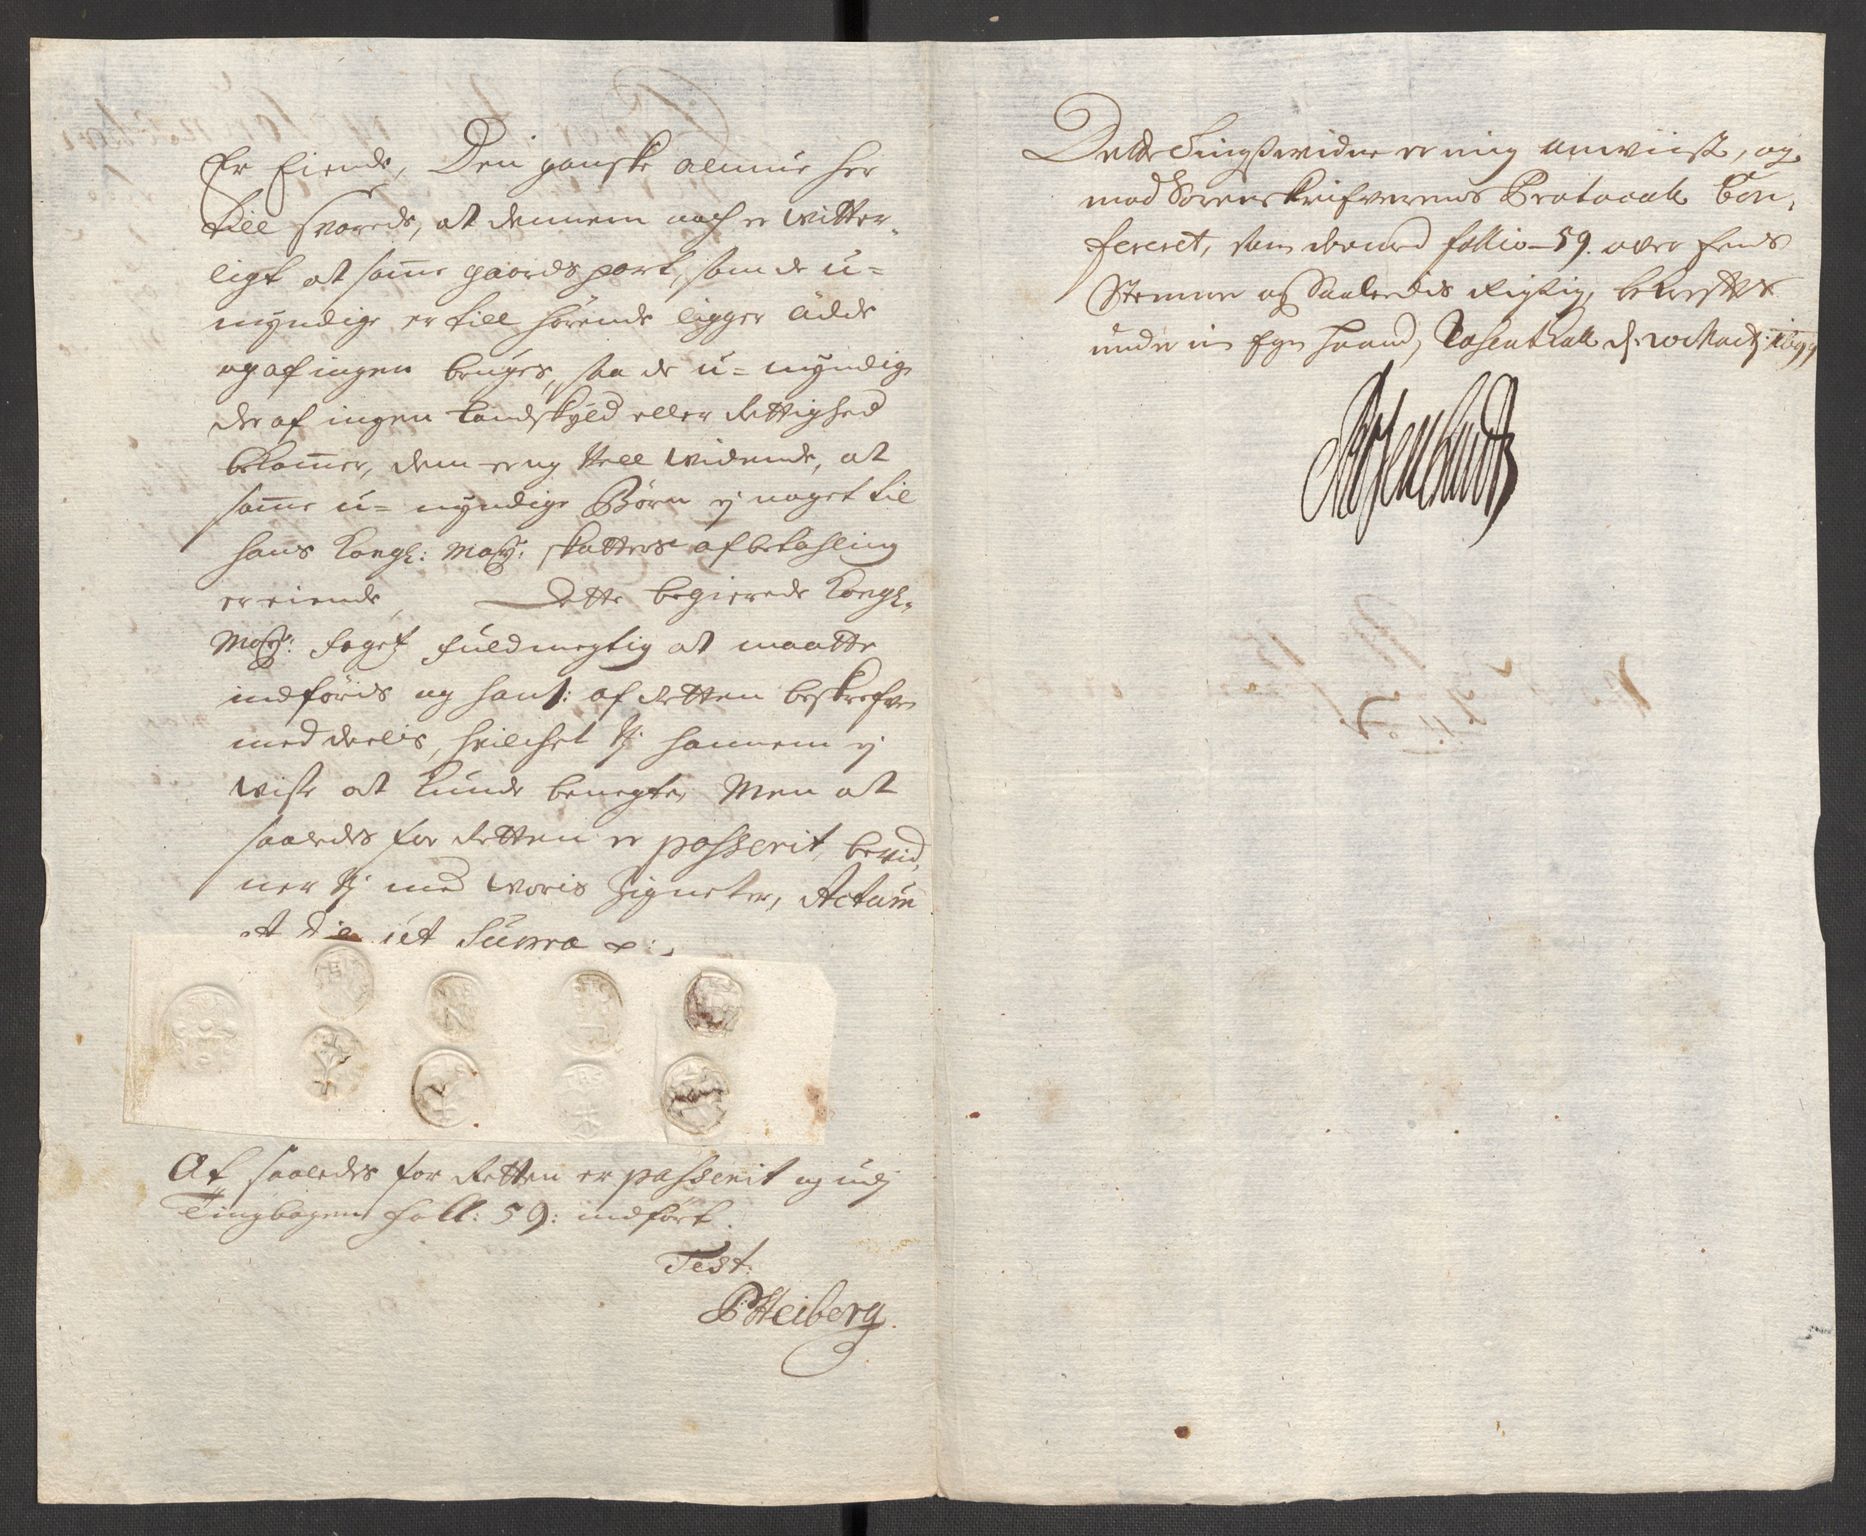 Er Eiende, Den ganske almue her
till svarede, at dennem nogh er witter-
ligt at same gaards part, som de u=
myndige er till hørende ligger ødde
og af ingen bruges, saa de u=myndige
der af ingen Landskyld eller Rettighed
bekomer, dem er og well widende, at
same u=myndige Børn ej noget til
hans Kongl: May: skatters afbetahling
er eiende, Dette begierede Kongl.
May: foget fuldmegtig at maatte
indføris og hanß: af Retten beskrefven
meddeelis, hvilchet Vj hannem ej
wiste at kunde benegte, Men at
saaledes for Retten er passerit, bevid,
ner Vj med woris Signeter, Actum
et die ut Supra
At saaledes for Retten er passerit og udj
Tingbogens foll: 59: indført.
Test:
P: Heiberg.
Dette Tingsvidne er mig anwiist, og
mod Sorenskrifverens Protocoll Con-
fereret, som dermed follio - 59. over Eens
Stemmer og Saaledis Rigtig, bekrefftes
under min Egen Haand, Rosendall d: 10 Martj: 1699